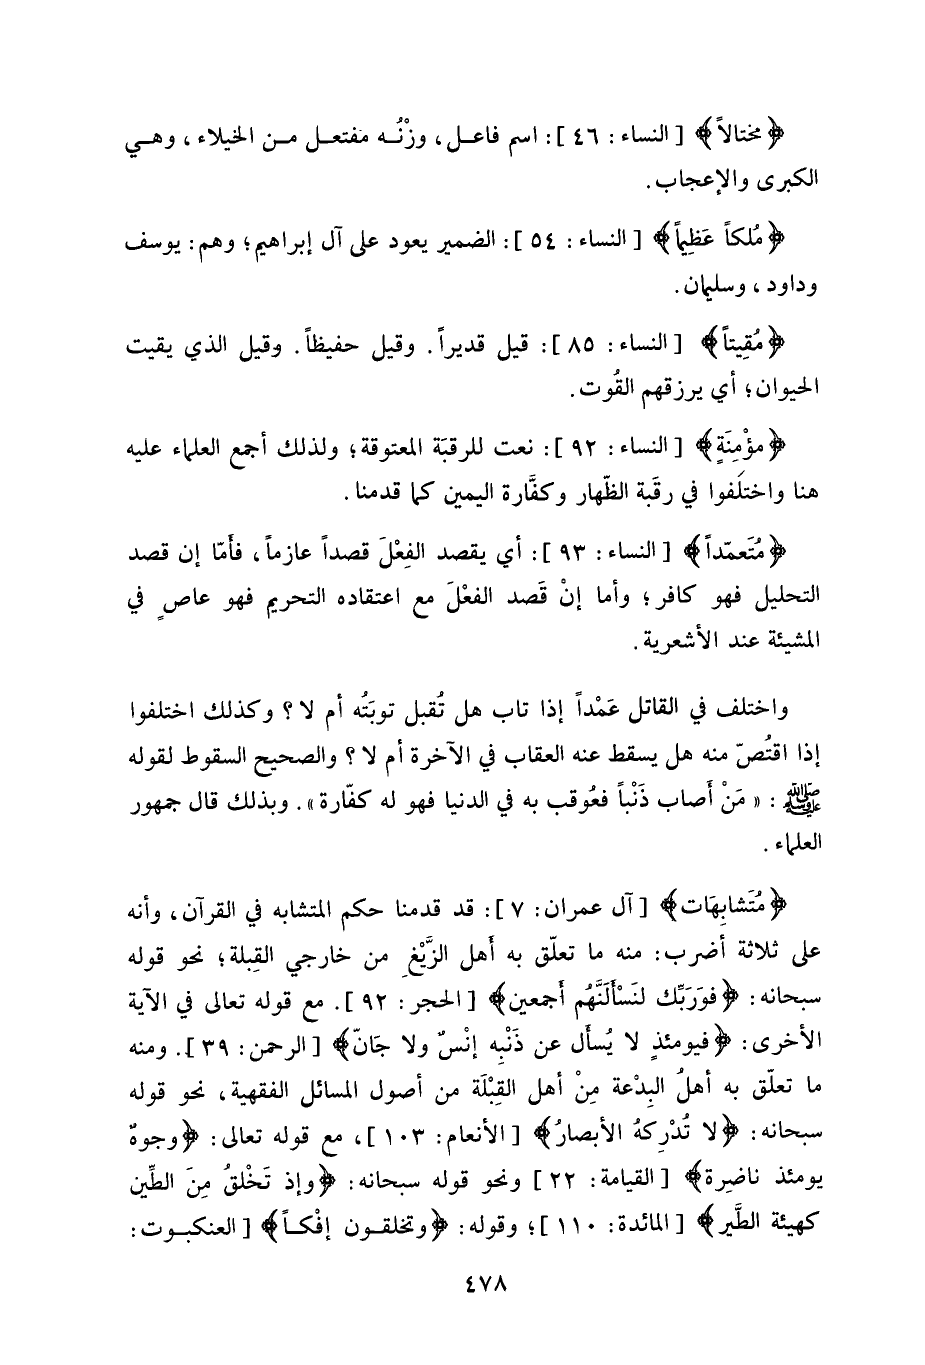 ﴿مختالاً﴾ [ النساء : ٤٦ ] : اسم فاعل ، وزْنُه مفتعل من الخيلاء ، وهي
الكبرى والإعجاب .
﴿مُلكاً عَظِيماً﴾ [ النساء : ٥٤ ] : الضمير يعود على آل إبراهيم؛ وهم: يوسف
وداود ، وسليمان .
﴿مُقِيتاً﴾ [ النساء : ٨٥ ] : قيل قديراً . وقيل حفيظاً . وقيل الذي يقيت
الحيوان؛ أي يرزقهم القُوت .
﴿مؤْمِنَةٍ﴾ [ النساء : ٩٢ ] : نعت للرقبَة المعتوقة؛ ولذلك أجمع العلماء عليه
هنا واختلَفوا في رقَبة الظّهار وكفَّارة اليمين كما قدمنا .
﴿مُتَعمّداً﴾ [ النساء : ٩٣ ] : أي يقصد الفِعْلَ قصداً عازماً ، فأَمّا إن قصد
التحليل فهو كافر؛ وأما إنْ قَصد الفعْلَ مع اعتقاده التحريم فهو عاصٍ في
المشيئة عند الأشعرية .
واختلف في القاتل عَمْداً إذا تاب هل تُقبل توبَتُه أم لا ؟ وكذلك اختلفوا
إذا اقتُصّ منه هل يسقط عنه العقاب في الآخرة أم لا ؟ والصحيح السقوط لقوله
ﷺ : « مَنْ أَصاب ذَنْباً فعُوقب به في الدنيا فهو له كفّارة » . وبذلك قال جمهور
العلماء .
﴿مُتَشابِهَات﴾ [ آل عمران: ٧ ] : قد قدمنا حكم المتشابه في القرآن ، وأنه
على ثلاثة أضرب: منه ما تعلّق به أَهل الزَّيْغِ من خارجي القِبلة؛ نحو قوله
سبحانه: ﴿فوَرَبِّك لنَسْأَلَنَّهُم أَجمعين﴾ [ الحجر : ٩٢ ] . مع قوله تعالى في الآية
الأخرى: ﴿فيومئذٍ لا يُسأَل عن ذَنْبِه إنْسٌ ولا جَانّ﴾ [ الرحمن: ٣٩ ] . ومنه
ما تعلّق به أهلُ البِدْعة مِنْ أهل القِبْلَة من أصول المسائل الفقهية ، نحو قوله
سبحانه: ﴿لا تُدْرِكهُ الأبصارُ﴾ [ الأنعام: ١٠٣ ] ، مع قوله تعالى: ﴿وجوهٌ
يومئذ ناضِرة﴾ [ القيامة: ٢٢ ] ونحو قوله سبحانه: ﴿وإذ تَخْلقُ مِنَ الطِّين
كهيئة الطَّير﴾ [ المائدة: ١١٠ ] ؛ وقوله: ﴿وتخلقون إفْكاً﴾ [ العنكبوت:
٤٧٨